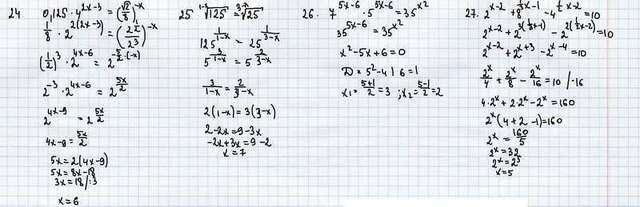 24 0,125 · 4^(2x-3) = (√2/8)^(-x)
1/8 · 2^(2(2x-3)) = (2^(1/2)/2^3)^(-x)
(1/2)^3 · 2^(4x-6) = 2^(-5/2·(-x))
2^(-3) · 2^(4x-6) = 2^(5x/2)
2^(4x-9) = 2^(5x/2)
4x-9 = 5x/2
5x = 2(4x-9)
5x = 8x-18
3x = 18 /:3
x = 6
25 ^(1-x)√125 = ^(3-x)√25
125^(1/(1-x)) = 25^(1/(3-x))
5^(3/(1-x)) = 5^(2/(3-x))
3/(1-x) = 2/(3-x)
2(1-x) = 3(3-x)
2-2x = 9-3x
-2x+3x = 9-2
x = 7
26. 7^(5x-6) · 5^(5x-6) = 35^(x²)
35^(5x-6) = 35^(x²)
x²-5x+6=0
D = 5²-4·1·6=1
x₁ = (5+1)/2 = 3 ; x₂ = (5-1)/2 = 2
27. 2^(x-2) + 8^(1/3x-1) - 4^(1/2x-2) = 10
2^(x-2) + 2^(3(1/3x-1)) - 2^(2(1/2x-2)) = 10
2^(x-2) + 2^(x-3) - 2^(x-4) = 10
2^x/4 + 2^x/8 - 2^x/16 = 10 /·16
4·2^x + 2·2^x - 2^x = 160
2^x(4+2-1) = 160
2^x = 160/5
2^x = 32
2^x = 2^5
x = 5